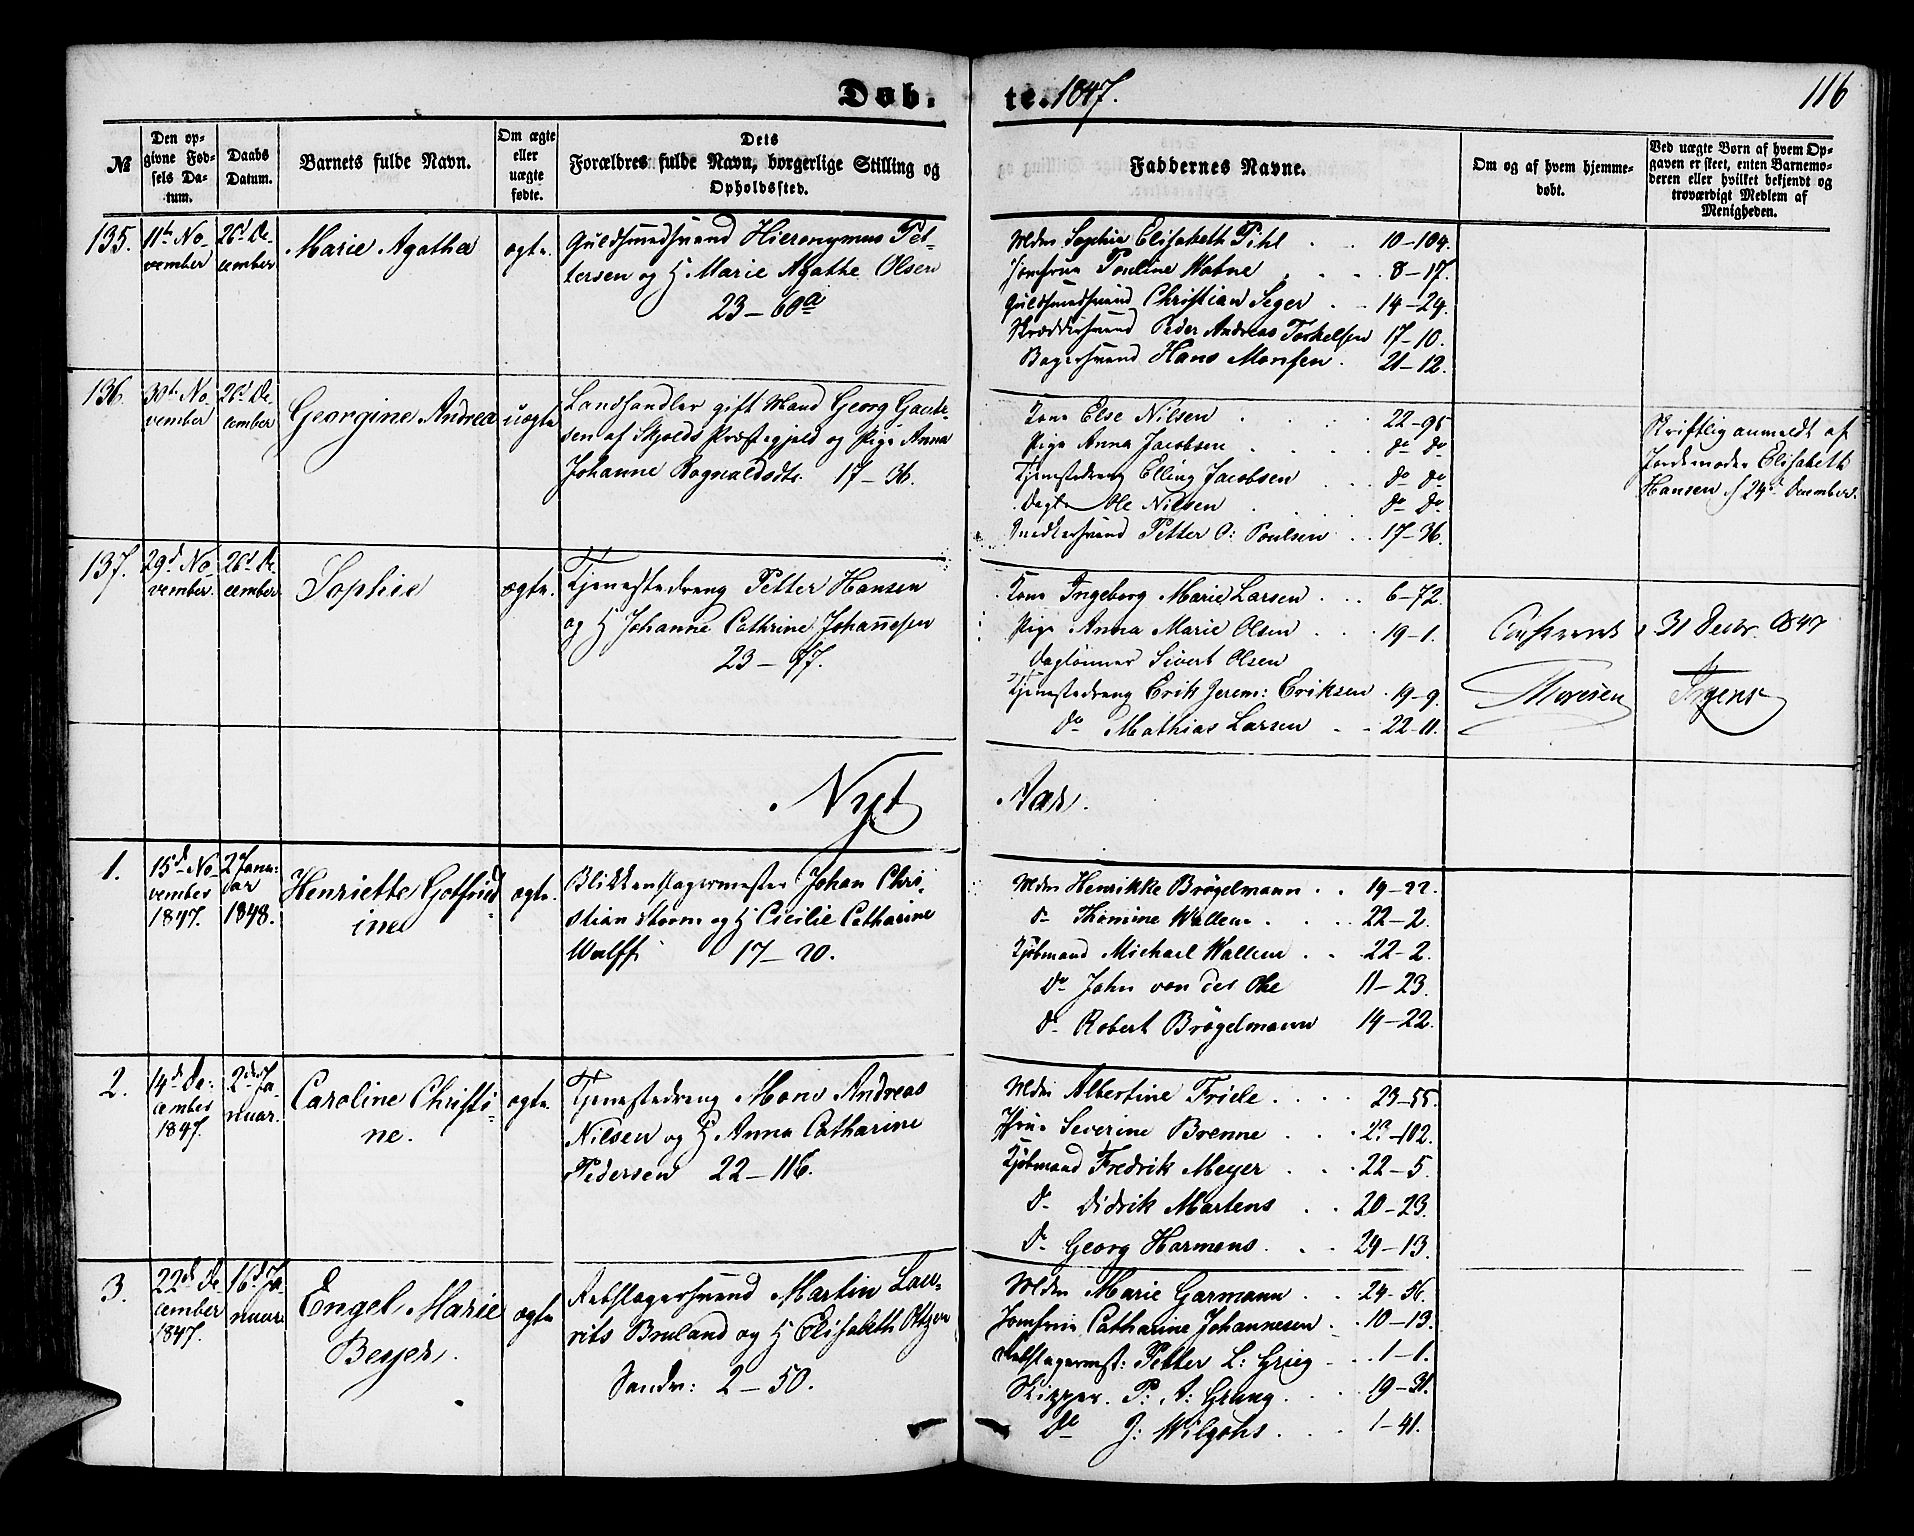 Døb. te. 1847. 116
№
Den opgivne Fødsels Datum.
Daabs Datum.
Barnets fulde Navn.
Om ægte eller uægte fødte.
Dets Forældres fulde Navn, borgerlige Stilling og Opholdssted.
Faddernes Navne.
Om og af hvem hjemmedøbt.
Ved uægte Børn af hvem Opgaven er skeet, enten Barnemoderen eller hvilket bekjendt og troværdigt Medlem af Menigheden.
135.
11t No-
vember
26d De-
cember
Marie Agatha
ægte.
Guldsmedsvend Hieronymus Pet-
tersen og H Marie Agathe Olsen
23–60a
Mdm Sophie Elisabeth Pihl . . 10–104.
Jomfrue Pouline Natne . . . 8–17.
Guldsmedsvend Christian Seger . . 14–24.
Skræddersvend Peder Andreas Torkelsen 17–10.
Bagersvend Hans Monsen . 21–12.
136.
30te No-
vember
26d De-
cember
Georgine Andrea
uægte
Landhandler gift Mand Georg Gaute-
sen af Skjolds Præstegjeld og Pige Anna
Johanne Rognaldsdtr. 17–36.
Kone Else Nilsen . . . 22–95
Pige Anna Jacobsen . . . do do
Tjenestedreng Elling Jacobsen . . do do
Ole Nilsen . . . do do
Snedkersvend Petter O: Poulsen . . 17–36.
Skriftlig anmeldt af
Jordemoder Elisabeth
Hansen d 24d December.
137.
29d No-
vember.
26d De-
cember
Sophie
ægte.
Tjenestedreng Petter Hansen
og H Johanne Cathrine Johannesen
23–97.
Kone Ingeborg Marie Larsen . . 6–72.
Pige Anna Marie Olsen . . . 19–1.
Daglønner Sivert Olsen
Tjenestedreng Erik Jerem: Eriksen . 19–9.
do Mathias Larsen . . 22–11.
31 Decbr. 1847
Nyt Aar.
1.
15d No-
vember
1847.
2 Janu-
ar
1848.
Henriette Gotfrid-
ine
ægte.
Blikkenslagermester Johan Chri-
stian Storm og H Cicilie Catharine
Wulff 17–20.
Mdm Henrikke Brögelmann . . 19–22.
do Thomine Wallem . . . 22–2.
Kjøbmand Michael Wallem . . 22–2.
do John von der Ohe 11–23.
do Robert Brögelmann 19–22.
2.
14d De-
cember
1847.
2den Ja-
nuar.
Caroline Christi-
ne.
ægte.
Tjenestedreng Mons Andreas
Nilsen og H Anna Catharine
Pedersen 22–116.
Mdm Albertine Friele . . . 23–55.
Severine Brenne . . .
Kjøbmand Fredrik Meyer . . . 22–5.
do Didrik Martens . . 20–23.
do Georg Harmens . . . 24–13.
3.
22d De-
cember
1847.
16d Ja-
nuar
Engel Marie
Beyer.
ægte
Rebslagersvend Martin Lau-
rits Bruland og H Elisabeth
Sandv: 2–50.
Mdm Marie Garmann . . 24–56.
Jomfrue Catharine Johannesen . 10–13.
Rebslagermst: Petter L: Grieg . . 1–1.
Skipper. P: A: Grung . . . 19–31.
do J: Wilgohs . . . 1–41.